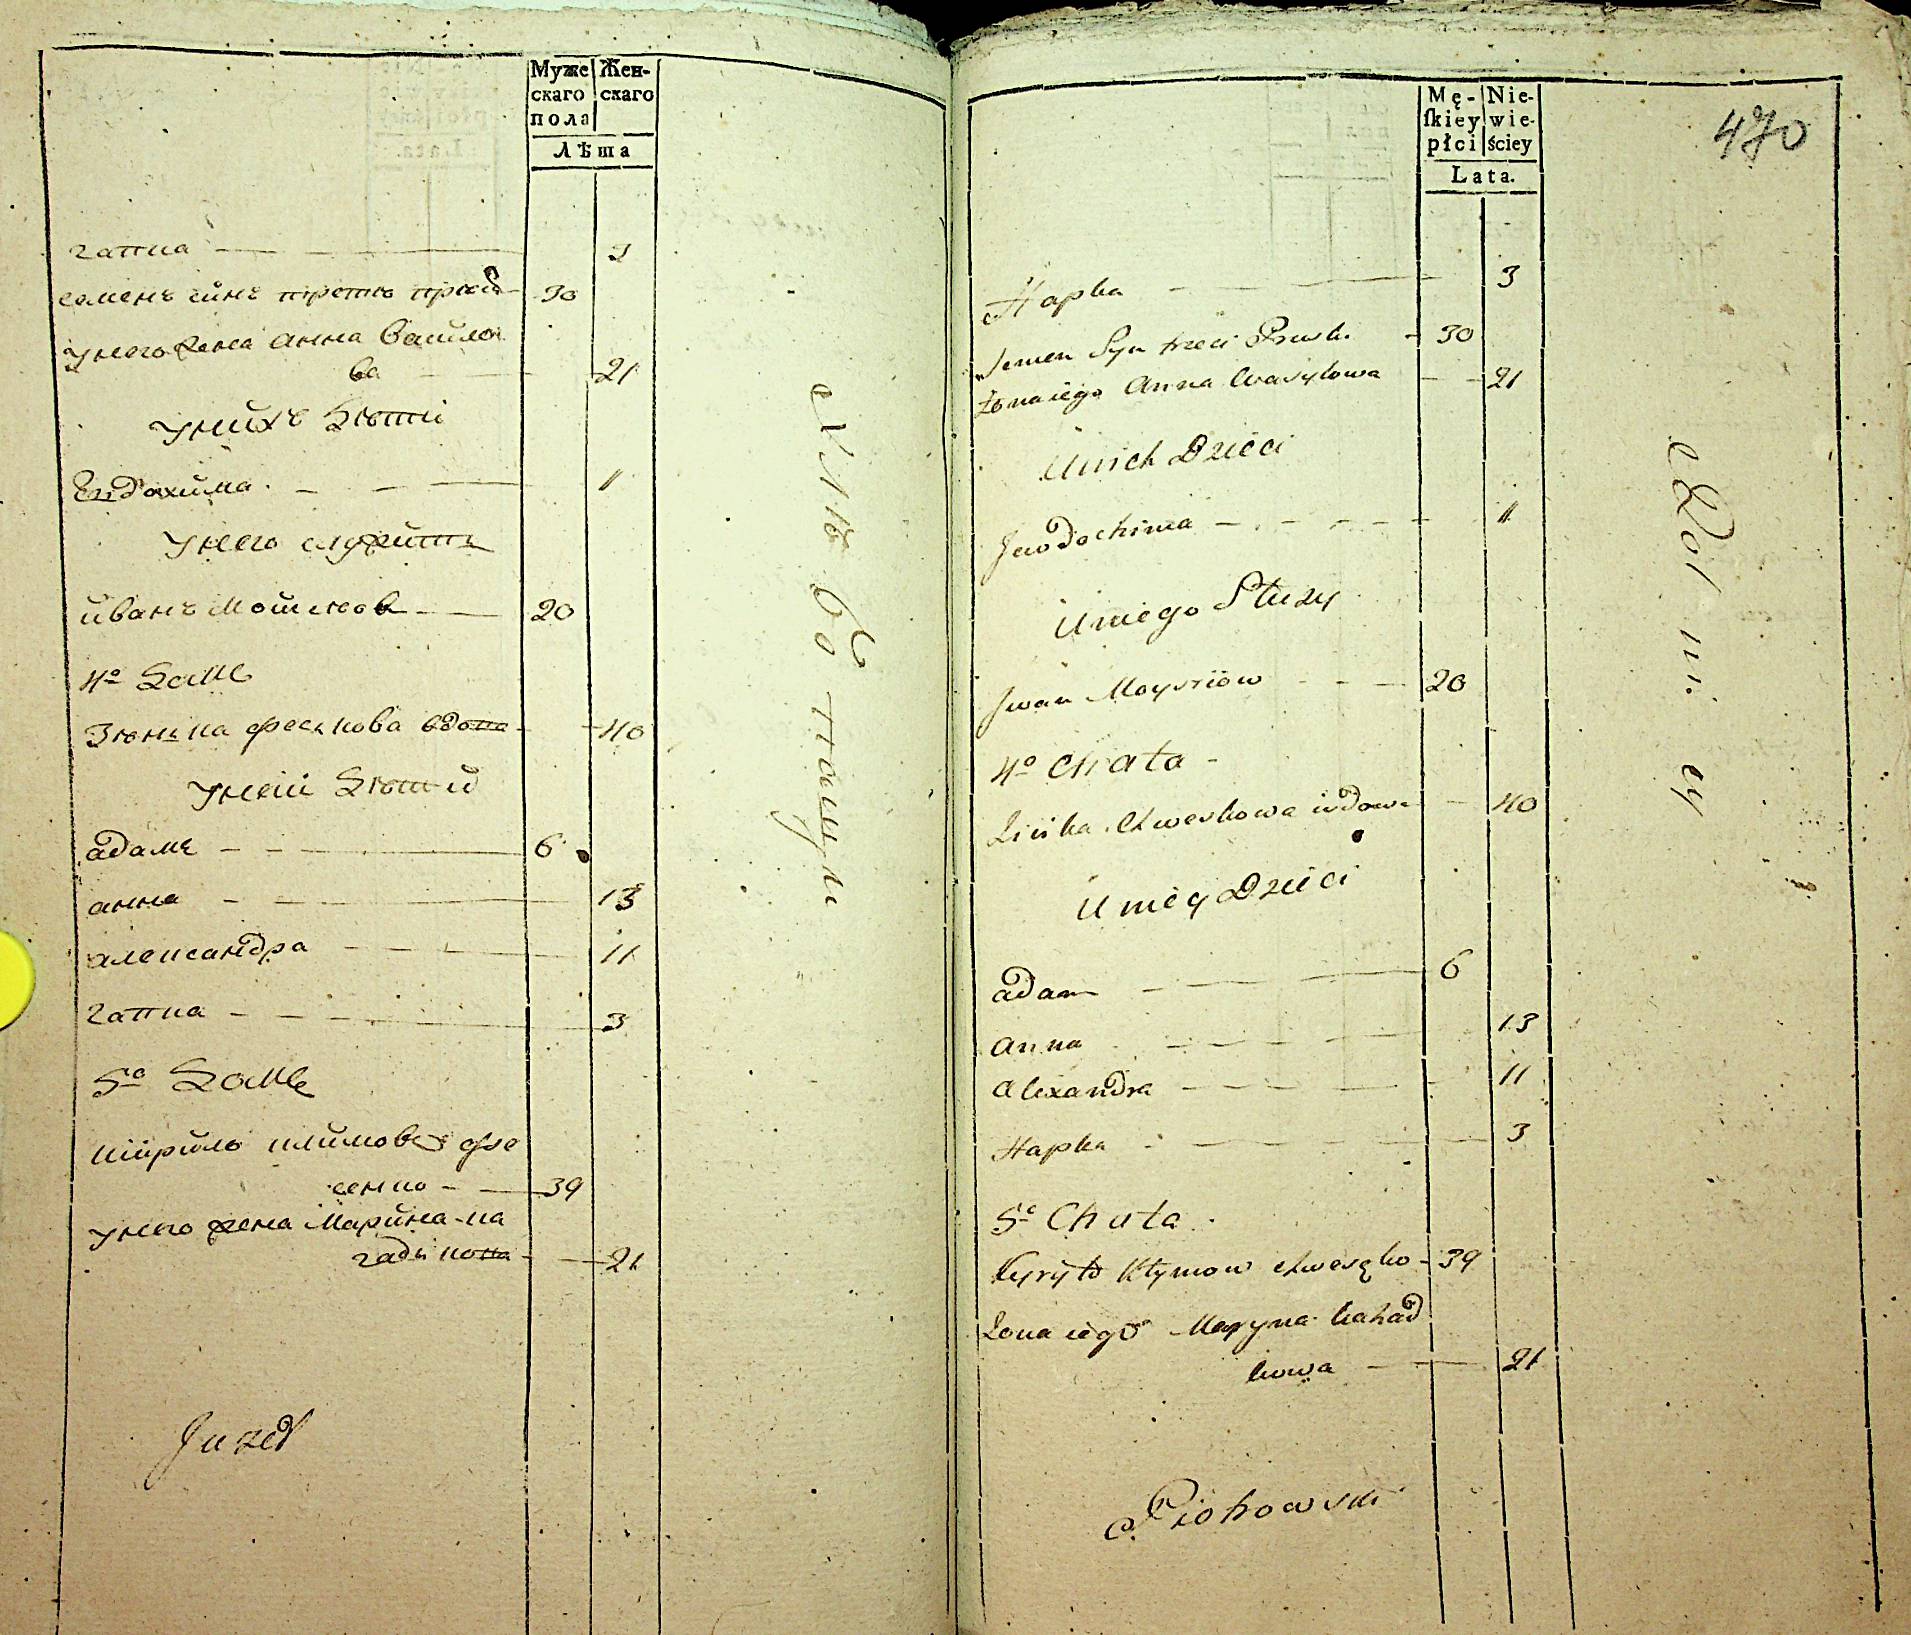 Муже Жен-
скаго скаго
пола
Лѣта
гапка 3
семенъ сынъ третъ 30
у него жена анна васило
ва 21
у нихъ дѣти
Евдохима 1
у него служитъ
иванъ Мойсеюв 20
4º Дому
Зѣнька феськова вдова 40
у ней дѣтий
адамъ 6
анна 13
александра 11
гапка 3
5º Дому
кирило климовъ фве
сенко 39
у него жена Марина ка
гадькова 21
Juzef
Mę- Nie-
ſkiey wie-
płci ściey
Lata.
470
Hapka 3
Semen Syn trzeci 30
Żona iego Anna Wasylowa 21
U nich Dzieci
Jewdochima 1
U niego Służy
Jwan Moysiiow 20
4º Chata
Zinka Chweskowa wdowa 40
U niey Dzieci
adam 6
anna 13
alexandra 11
Hapka 3
5º Chata
Kyryło Kłymow 39
Zona iego Maryna kahad
kowa 21
Piotrowski